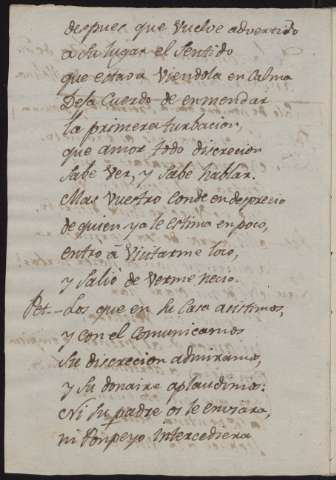 despues que vuelve advertido
a su lugar el sentido
que estava viendola en calma
Desa Cuerdo de enmendar
la primera turbacion,
que amor todo discrecion
sabe ver, y sabe hablar.
Mas vuestro Conde en desprecio
de quien ya le estima en poco,
entró â visitarme loco,
y salió de verme necio.
Pet.- Los que en su Casa asistimos,
y con el Comunicamos
su discrecion admiramos,
y su donaire aplaudimos:
Ni su padre os le enviara,
ni Pompeyo intercediera